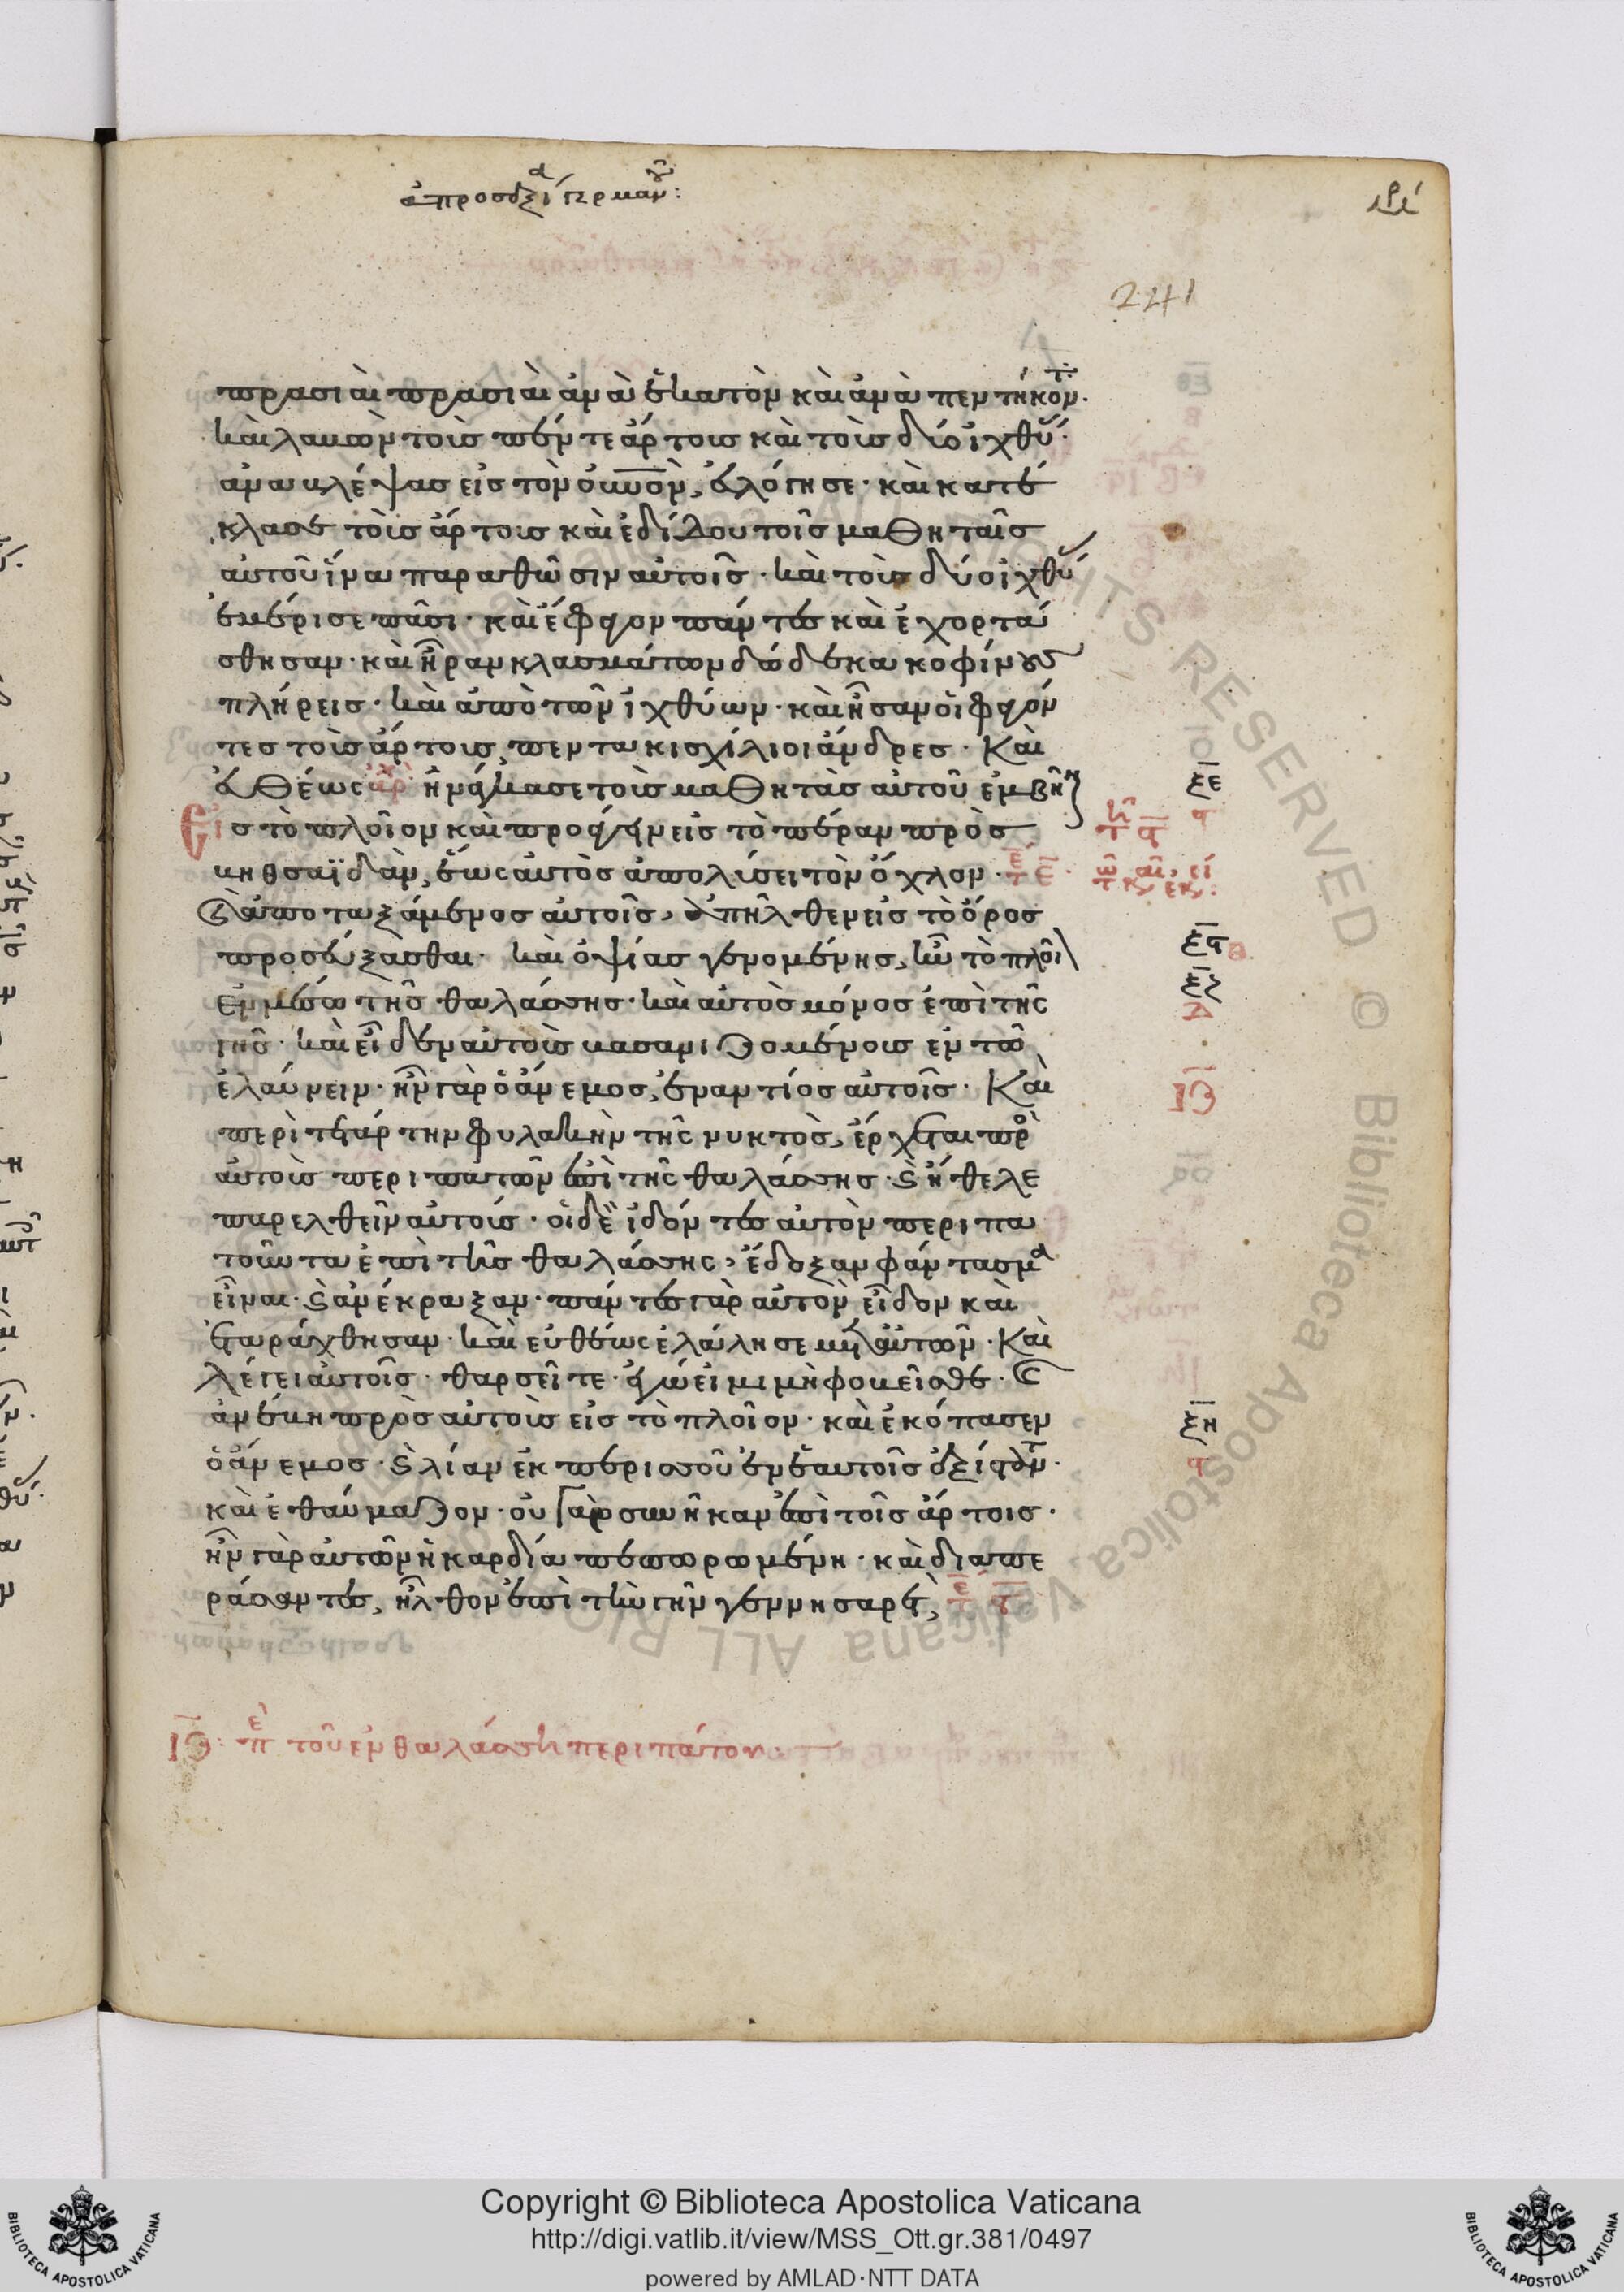 241
πρασιαὶ πρασιαὶ ἀνὰ ἑκατὸν καὶ ἀνὰ πεντήκοντ.
καὶ λαβὼν τοὺς πέντε ἄρτους καὶ τοὺς δύο ἰχθύ.
ἀναβλέψας εἰς τὸν οὐνον, εὐλόγησε· καὶ κατέ
κλασε τοὺς ἄρτους καὶ ἐδίδου τοῖς μαθηταῖς
αὐτοῦ ἵνα παραθῶσιν αὐτοῖς· καὶ τοὺς δύο ἰχθύ
ἐμέρισε πᾶσι· καὶ ἔφαγον πάντες καὶ ἐχορτά
σθησαν· καὶ ἦραν κλασμάτων δώδεκα κοφίνους
πλήρεις· καὶ ἀπὸ τῶν ἰχθύων· καὶ ἦσαν οἱ φαγόν
τες τοὺς ἄρτους, πεντακισχίλιοι ἄνδρες· Καὶ
εὐθέως ἀρ ἠνάγκασε τοὺς μαθητὰς αὐτοῦ ἐμβῆν
ξε
εἰς τὸ πλοῖον καὶ προάγειν εἰς τὸ πέραν πρὸς
βηθσαϊδὰν, ἕως αὐτὸς ἀπολύσει τὸν ὄχλον·
καὶ ἀποταξάμενος αὐτοῖς, ἀπῆλθεν εἰς τὸ ὄρος
ξς
προσεύξασθαι· καὶ ὀψίας γενομένης, ἦν τὸ πλοῖ
ξζ
ἐν μέσω τῆς θαλάσσης· καὶ αὐτὸς μόνος ἐπὶ τῆς
γῆς· καὶ εἶδεν αὐτοὺς βασανιζομένους ἐν τῶ
ἐλαύνειν· ἦν γὰρ ὁ ἄνεμος, ἐναντίος αὐτοῖς· Καὶ
ιϛ
περὶ τετάρτην φυλακὴν τῆς νυκτὸς, ἔρχεται πρὸ
αὐτοὺς περιπατῶν ἐπὶ τῆς θαλάσσης· ϗ ἤθελε
παρελθεῖν αὐτούς· οἱ δὲ ἰδόντες αὐτὸν περιπα
τοῦντα ἐπὶ τῆς θαλάσσης, ἔδοξαν φάντασμα
εἶναι· ϗ ἀνέκραξαν· πάντες γὰρ αὐτὸν εἶδον καὶ
ἐταράχθησαν· καὶ εὐθέως ἐλάλησε μετ αὐτῶν· Καὶ
λέγει αὐτοῖς· θαρσεῖτε· ἐγώ εἰμι μὴ φοβεῖσθε· ϗ
ἀνέβη πρὸς αὐτοὺς εἰς τὸ πλοῖον· καὶ ἐκόπασεν
ξη
ὁ ἄνεμος· ϗ λίαν ἐκ περισσοῦ ἐν ἑαυτοῖς ἐξίσταντ.
καὶ ἐθαύμαζον· οὐ γὰρ συνῆκαν ἐπὶ τοῖς ἄρτοις·
ἦν γὰρ αὐτῶν ἡ καρδία πεπωρωμένη· καὶ διαπε
ράσαντες, ἦλθον ἐπὶ τὴν γῆν γεννησαρέτ,
ιϛ πε τοῦ ἐν θαλάσση περιπάτου
Copyright © Biblioteca Apostolica Vaticana
http://digi.vatlib.it/view/MSS_Ott.gr.381/0497
powered by AMLAD·NTT DATA